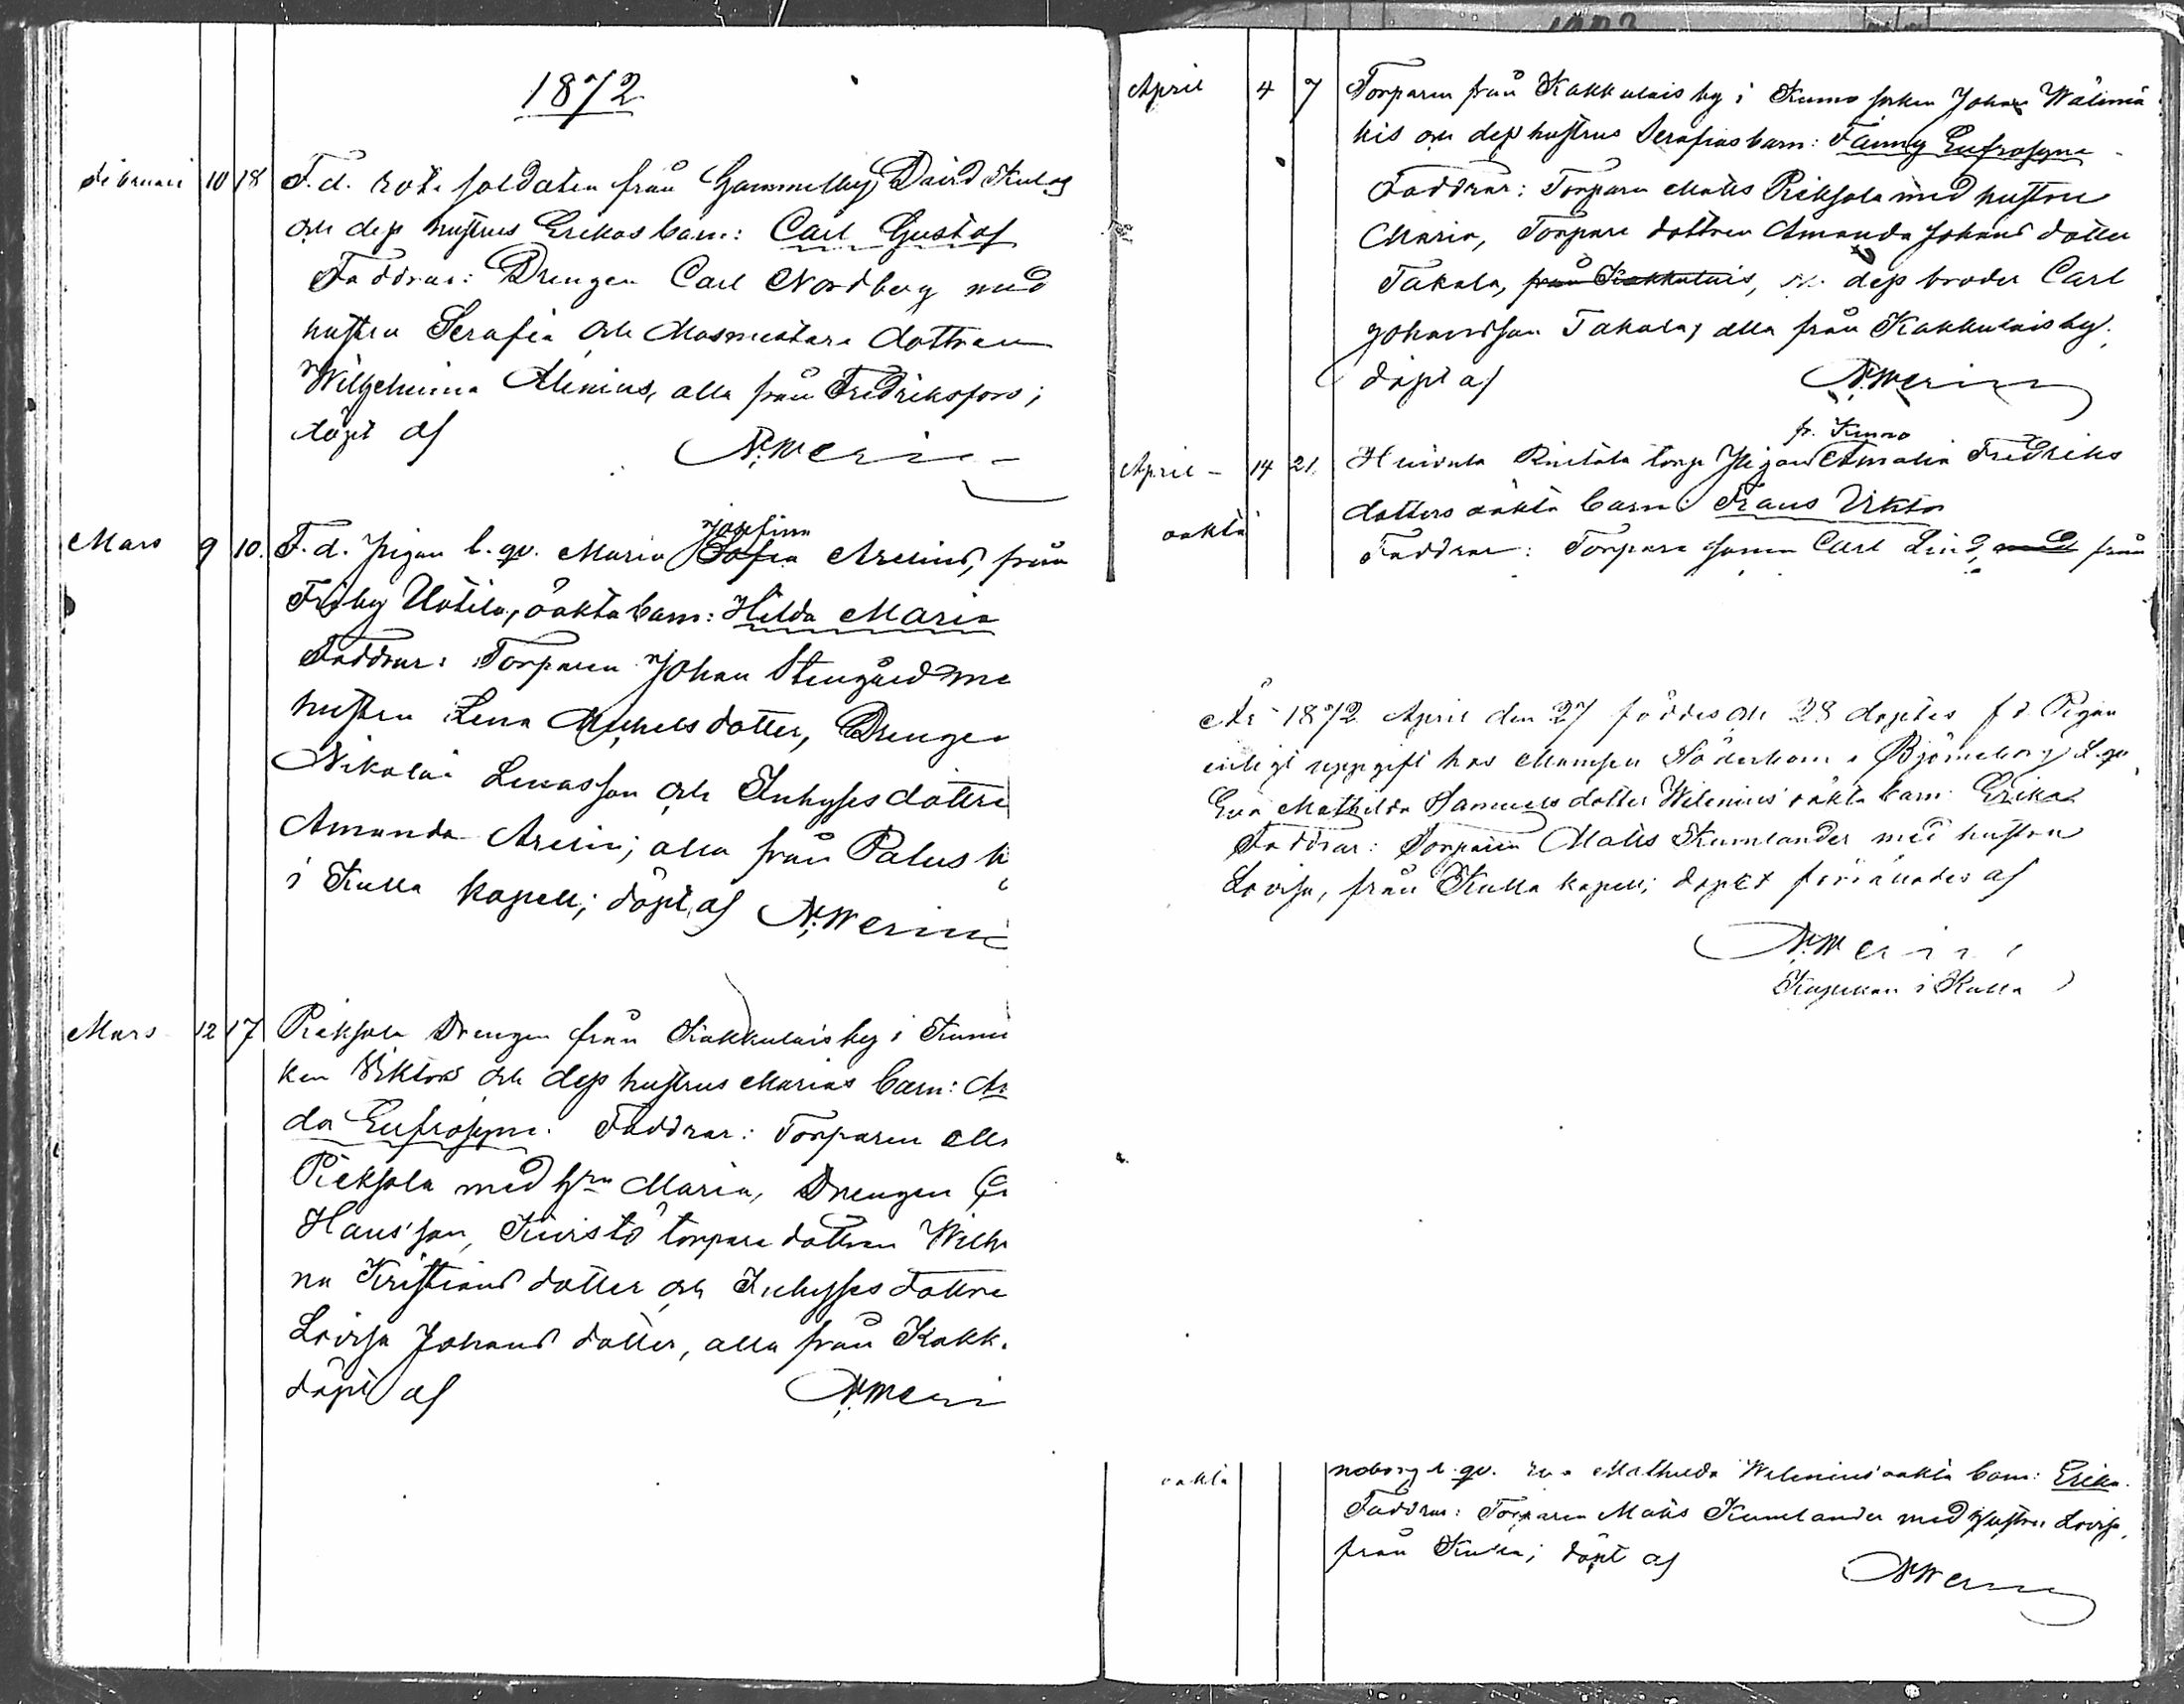 1872
Februari 10 18 F. d. rote soldaten från Gammelby David Kulas
och dess hustrus Erikas barn: Carl Gustaf
Faddrar: Drengen Carl Nordberg med
hustru Serafia och Masmästare dottren
Wilhelmina Alenius, alla från Fredriksfors;
döpt af N. Meri
Mars 9 10. F. d. pigan l. qv. Maria Josefina Sofia Arelius, från
Friby Uotila, oäkta barn: Hilda Maria
Faddrar: Torparen Johan Stengård me
hustru Lena Michelsdotter, Drengen
Nikolai Lucasson och Inhyses dottre
Amanda Arelin; alla från Palus
i Kulla kapell; döpt af N. Meri
Mars 12 17 Pieksola Drengen från Kakkulais by i Kumo
ken Viktors och dess hustrus Marias barn:
da Eufrosyne. Faddrar: Torparen
Pieksola med hru Maria, Drengen
Hansson, Kuisto torpare dottren Wilh
na Kristiansdotter och Inhyses dottre
Lovisa Johansdotter, alla från Kakk.
döpt af N. Meri
April 4 7 Torparen från Kakkulais by i Kumo socken Johan Wälimä
kis och dess hustrus Serafias barn: Fanny Eufrosyne
Faddrar: Torparen Matts Pieksola med hustru
Maria, Torpare dottren Amanda Johansdotter
Takala, från Kakkulais, dess broder Carl
Johansson Takala, alla från Kakkulais by;
döpt af N. Meri
fr. Kumo
April 14 21. Huivula Rintala torp Pigan Amalia Fredriks
dotters oäkta barn: Frans Viktor
oäkta Faddrar: Torpare sonen Carl Lind, med från
År 1872 April den 27 föddes och 28 döptes f. d. Pigan
enligt uppgift hos Mamsen Söderbom i Björneborg l. qv
Eva Mathilda Samuelsdotter Wilenius' oäkta barn Erika
Faddrar: Torparen Matts Kumlander med hustru
Lovisa, från Kulla kapell; dopet förrättades af
N. Meri
Kapellan i Kulla
oäkta neborg l. qv. Eva Mathilda Wilenius' oäkta barn: Erika.
Faddrar: Torparen Matts Kumlander med hustru Lovisa,
från Kulla; döpt af N. Meri